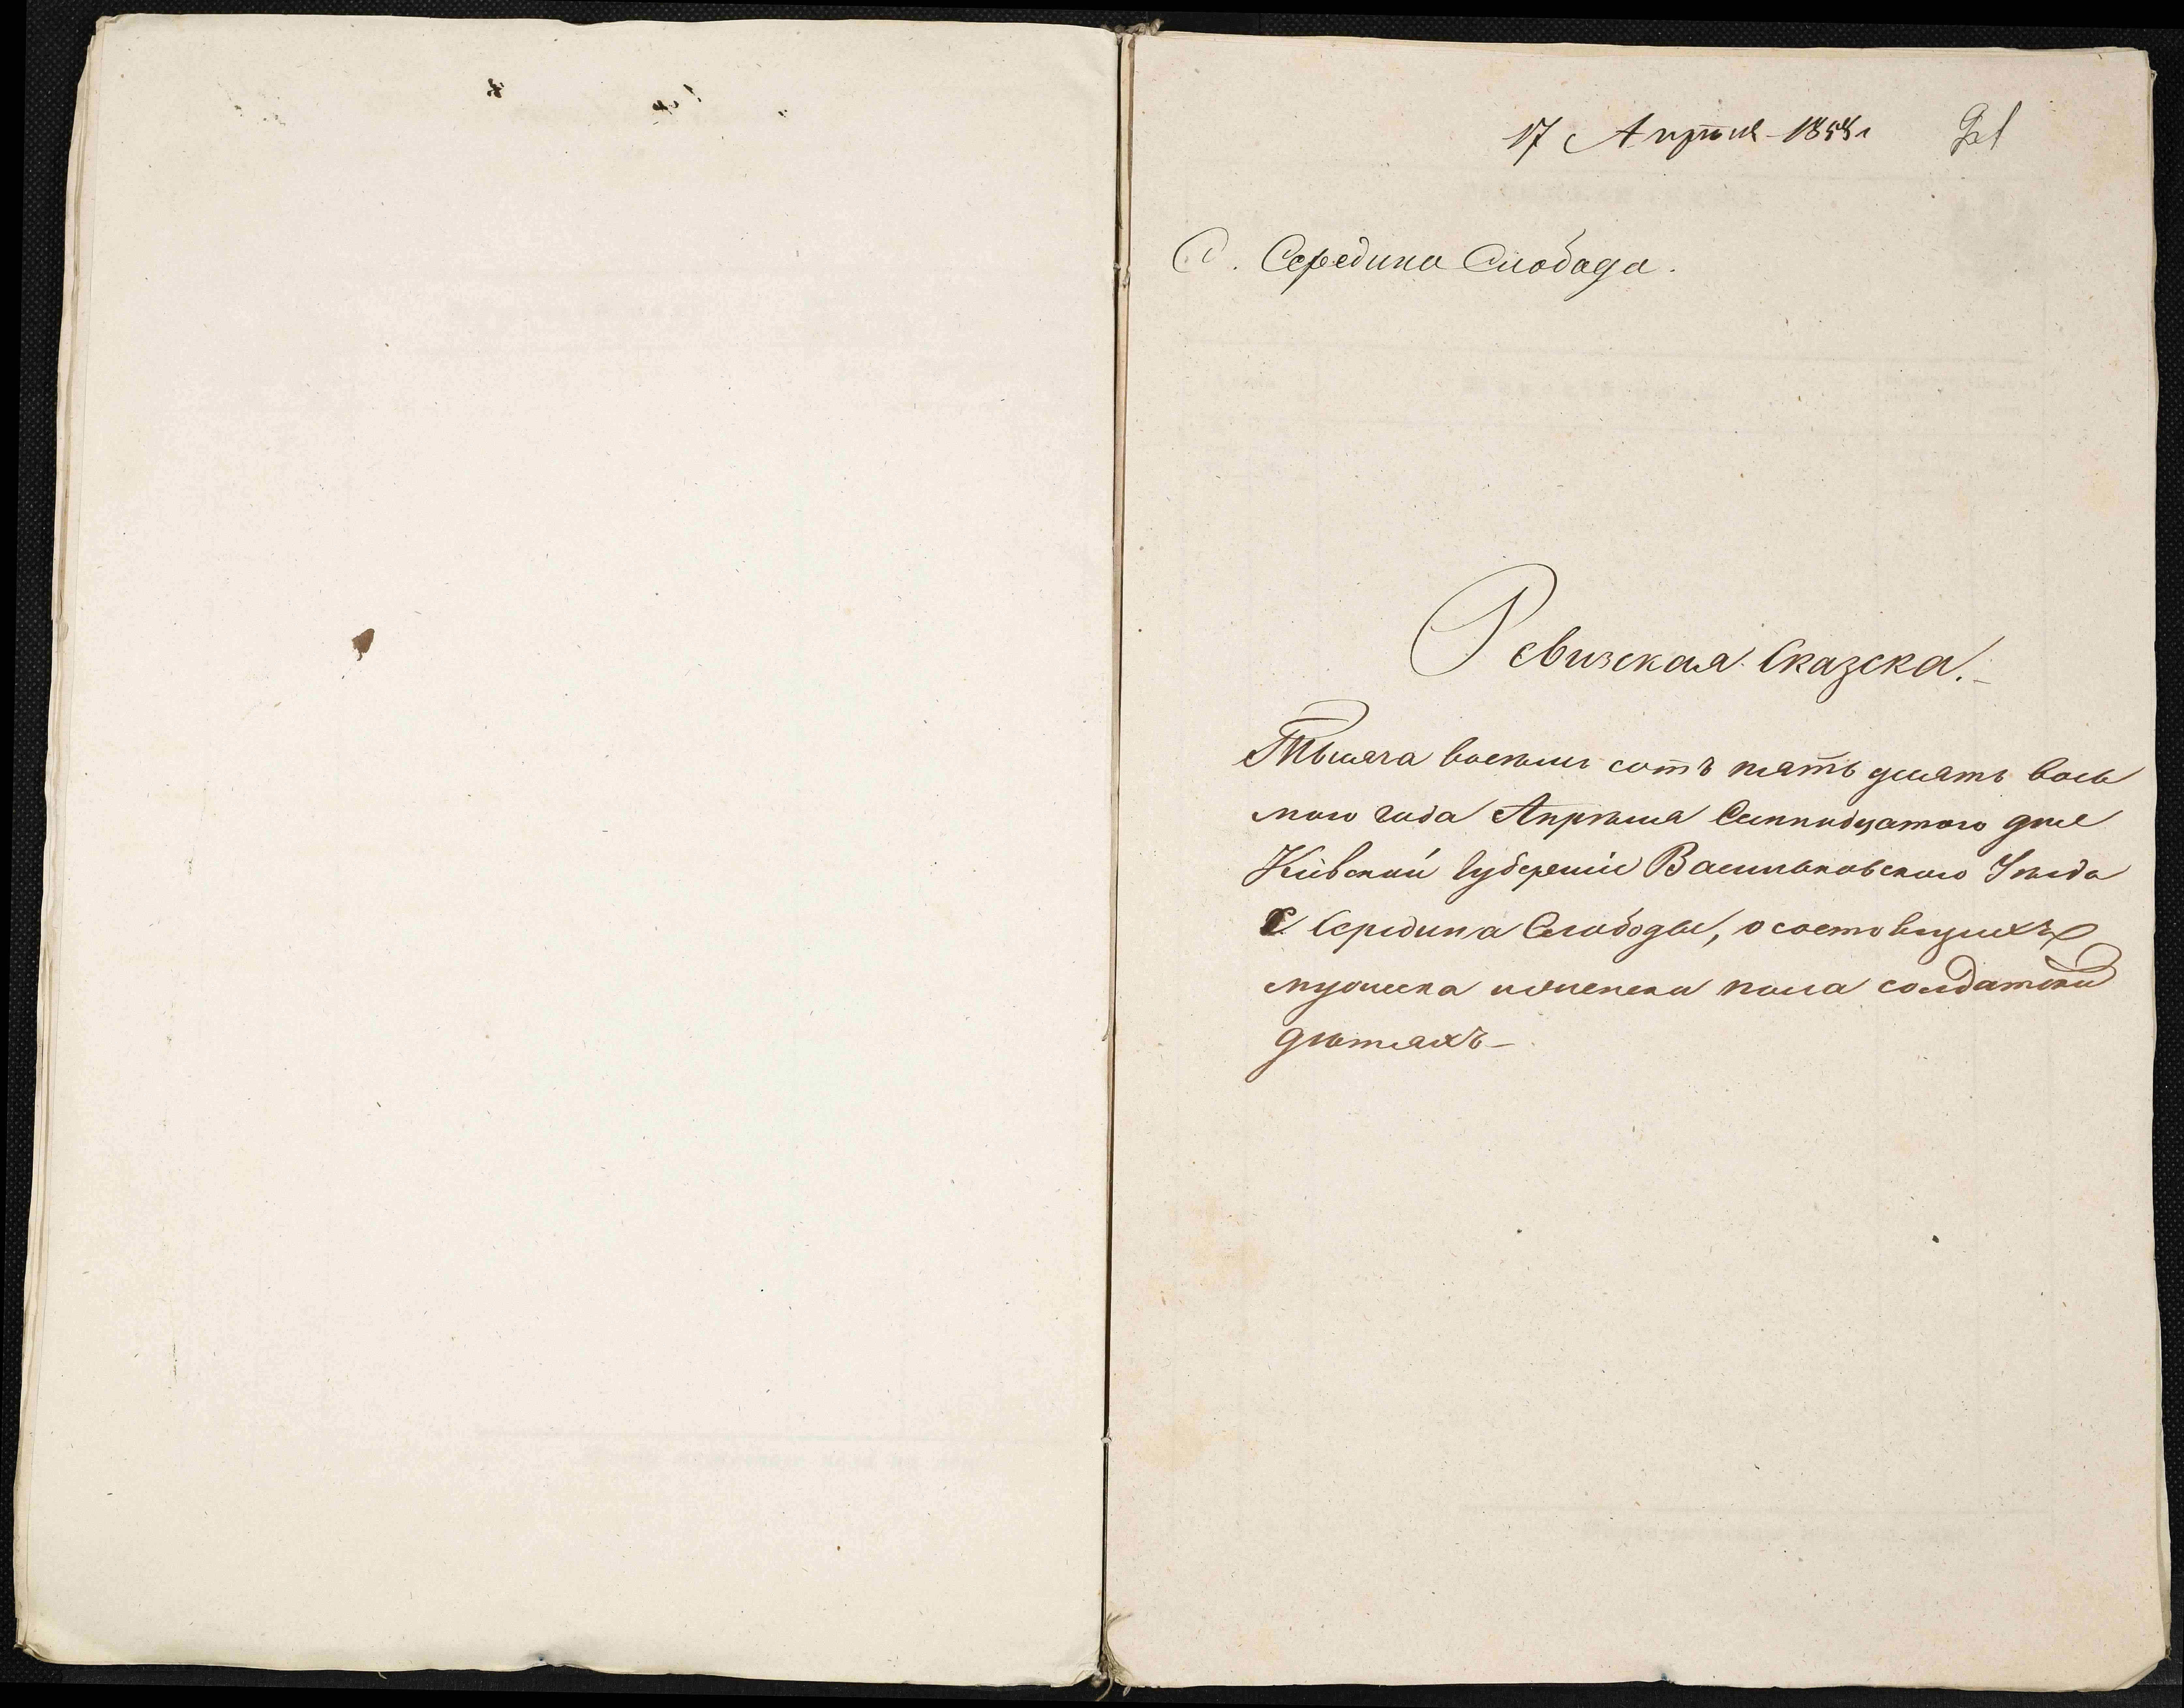 17 Апрѣля 1858 г
С. Середина Слобода.
Ревизская Сказска.
Тысяча восемь сотъ пять десять вось
мого года Апрѣля Семнадцатого дня
Кіевской Губерніи Васильковского Уезда
С Середина Слободы, о состоящихъ
мужеска и женска пола солдатски
дѣтяхъ